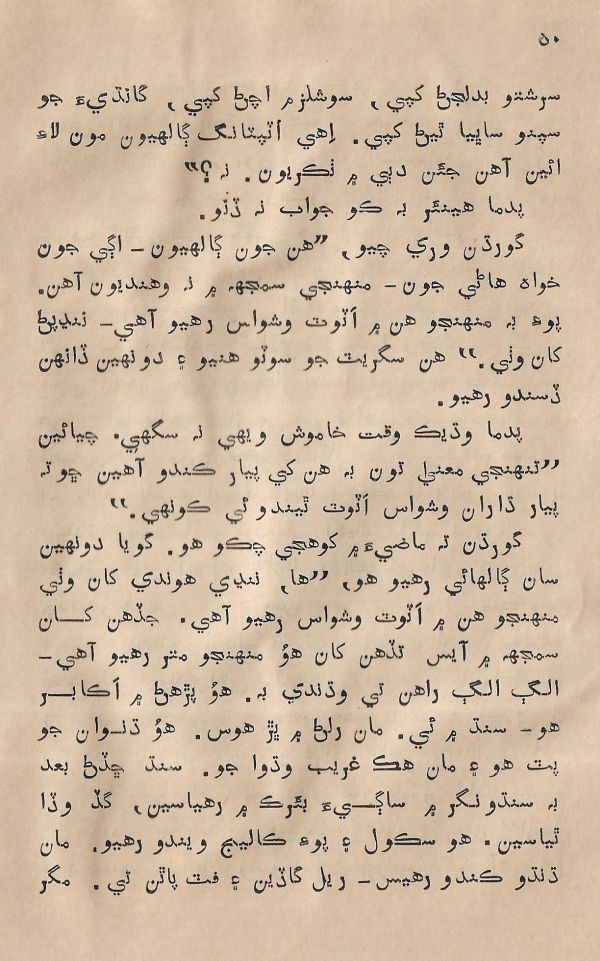 ۵۰
سرشتو بدلجڻ کپي, سوشلزم اچڻ کپي, گانڌيءَ جو
سپنو ساڀيا ٿيڻ کپي. اِهي اَٽپٽانگ ڳالهيون مون لاءِ
ائين آهن جئن دٻي ۾ ٺڪريون. نه ؟”
پدما هينئر به ڪو جواب نه ڏنو.
گورڌن وري چيو, ”هن جون ڳالهيون – اڳي جون
خواه هاڻي جون – منهنجي سمجهه ۾ نه وهنديون آهن.
پوءِ به منهنجو هن ۾ اَٽوٽ وشواس رهيو آهي – ننڍپڻ
کان وٺي.“ هن سگريٽ جو سوٽو هنيو ۽ دونهين ڏانهن
ڏسندو رهيو.
پدما وڌيڪ وقت خاموش ويهي نه سگهي. چيائين
”تنهنجي معنيٰ تون به هن کي پيار ڪندو آهين ڇو ته
پيار ڌاران وشواس اَٽوٽ ٿيندو ئي ڪونهي.“
گورڌن ته ماضيءَ ۾ کوهجي چڪو هو. گويا دونهين
سان ڳالهائي رهيو هو, ”ها, ننڍي هوندي کان وٺي
منهنجو هن ۾ اَٽوٽ وشواس رهيو آهي. جڏهن کان
سمجهه ۾ آيس تڏهن کان هوُ منهنجو متر رهيو آهي –
الڳ الڳ راهن تي وڌندي به. هوُ پڙهڻ ۾ اَڪابر
هو – سنڌ ۾ ئي. مان رلڻ ۾ يڙ هوس. هوُ ڌنوان جو
پٽ هو ۽ مان هڪ غريب وڌوا جو. سنڌ ڇڏڻ بعد
به سنڌونگر ۾ ساڳيءَ بئرڪ ۾ رهياسين, گڏ وڏا
ٿياسين. هو سڪول ۽ پوءِ ڪاليج ويندو رهيو. مان
ڌنڌو ڪندو رهيس – ريل گاڏين ۽ فٽ پاٿن تي. مگر